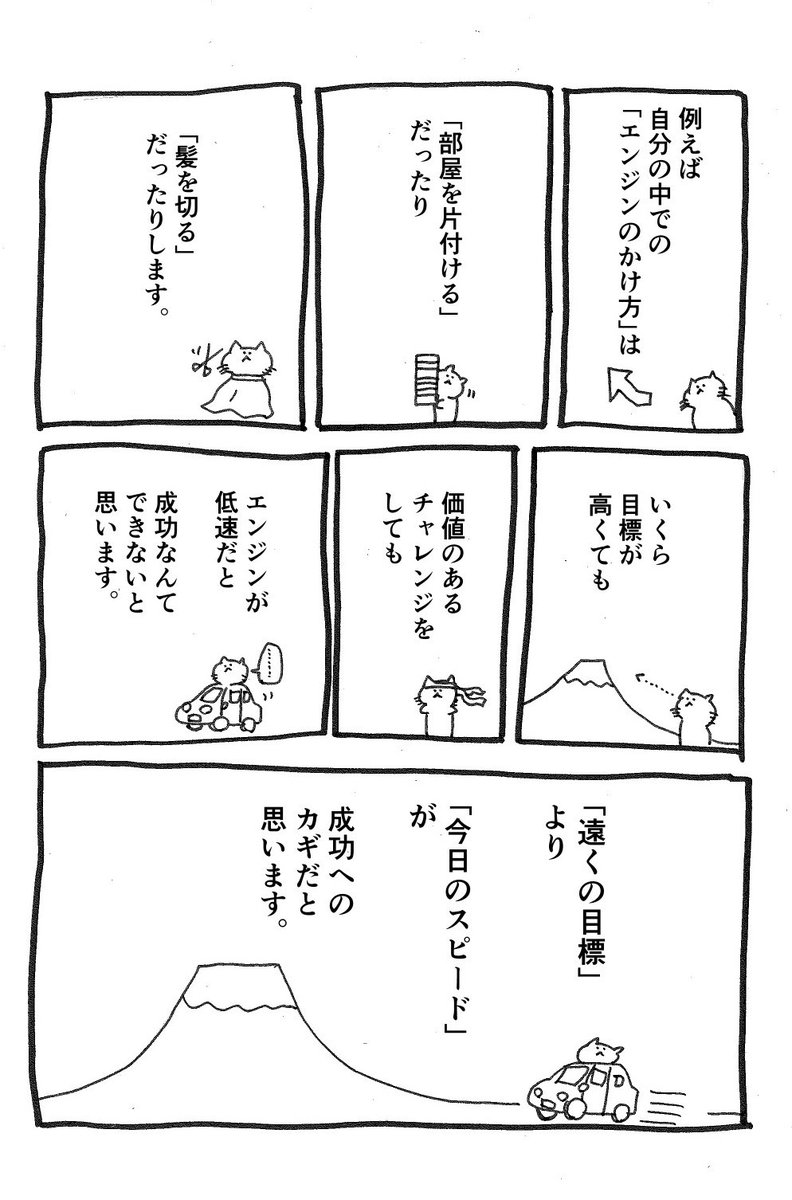 例えば
自分の中での
「エンジンのかけ方」は
「部屋を片付ける」
だったり
「髪を切る」
だったりします。
いくら
目標が
高くても
価値のある
チャレンジを
しても
エンジンが
低速だと
成功なんて
できないと
思います。
………
「遠くの目標」
より
「今日のスピード」
が
成功への
カギだと
思います。